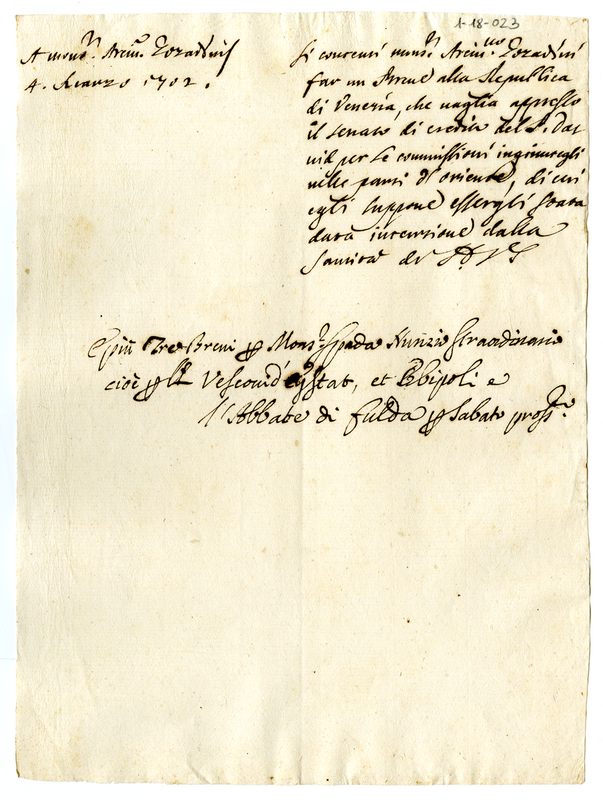 1-18-023
A mons.r Arciv.o Gozadini
4. Marzo 1702.
Si contenti mons.r Arciv.uo Gozadini
far un Breve alla Republica
di Venezia, che vaglia appresso
il senato di credito del P. Da
vid per le commissioni ingiuntegli
nelle parti d'oriente, di cui
egli suppone essergli stata
data intenzione dalla
Santità di
E più Tre Brevi p Mons.r Spada Nunzio straordinario
cioè p li Vescovi d'Eystat, et Erbipoli e
l'Abbate di Fulda p Sabato pross.o